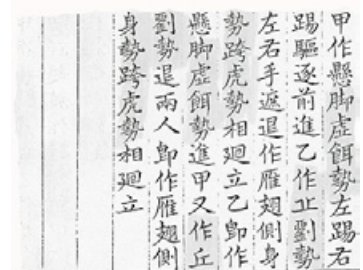 甲作懸脚虛餌勢左踢右
踢驅逐前進乙作丘劉勢
左右手遮退作雁翅側身
勢跨虎勢相廻立乙卽作
懸脚虛餌勢進甲又作丘
劉勢退兩人卽作雁翅側
身勢跨虎勢相廻立